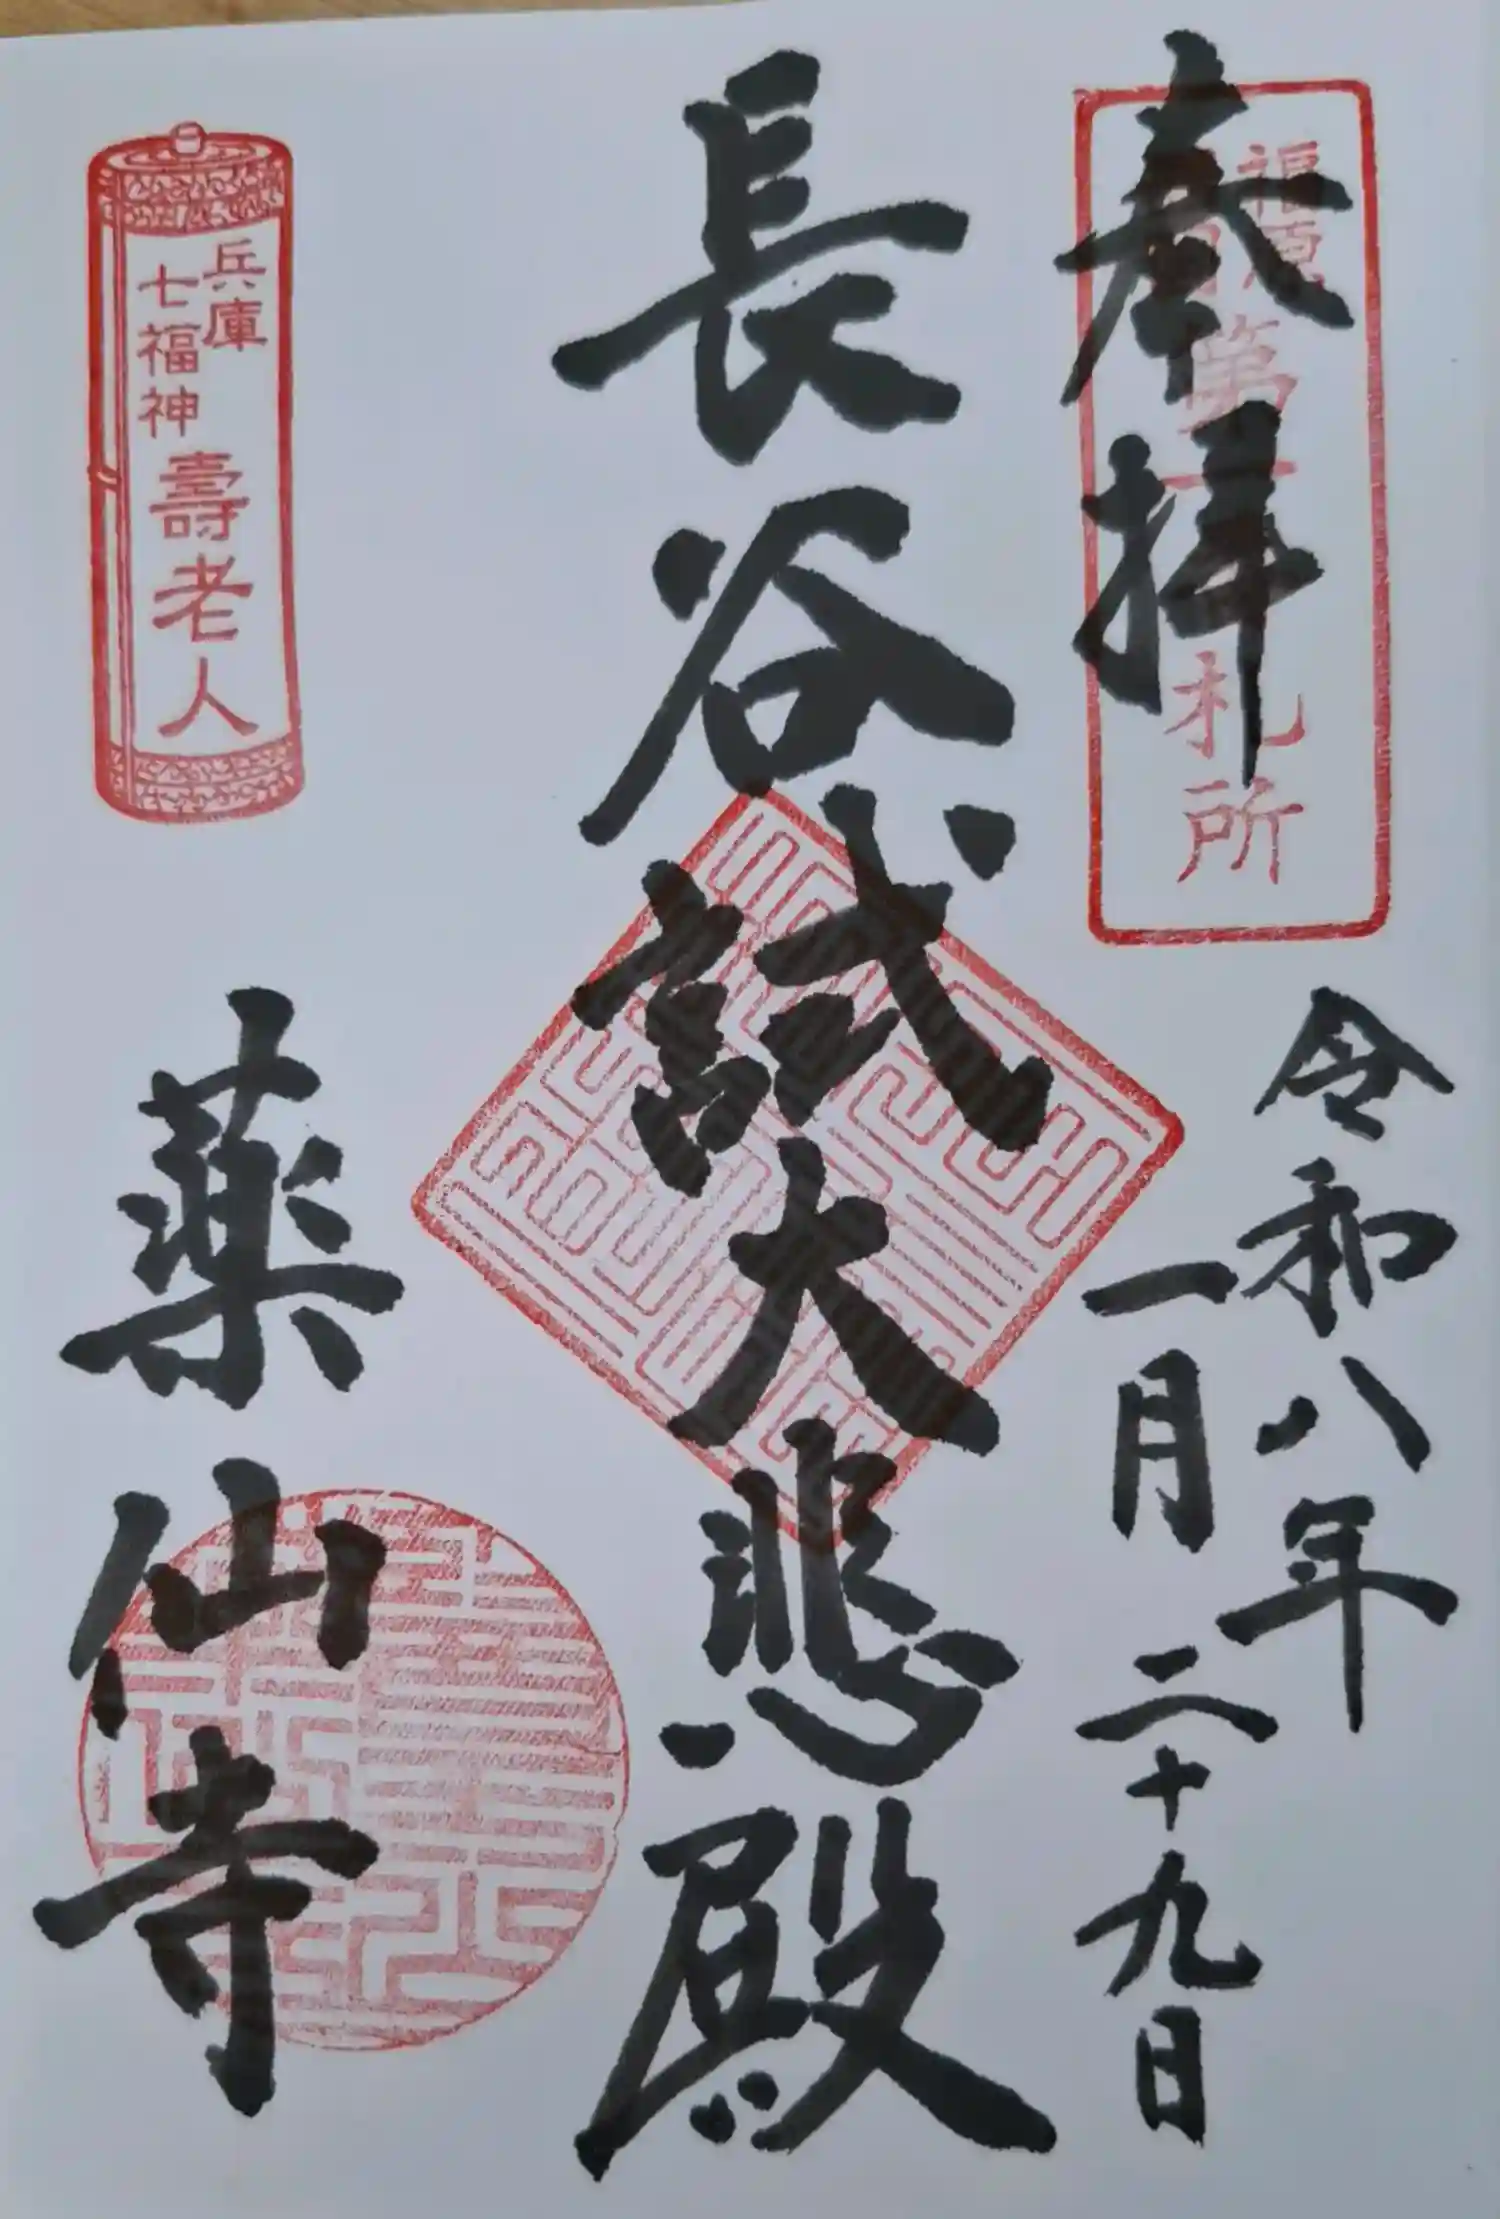 奉拝
福原
第
札所
令和八年
一月二十九日
長谷試大悲殿
兵庫
七福神
壽老人
薬仙寺